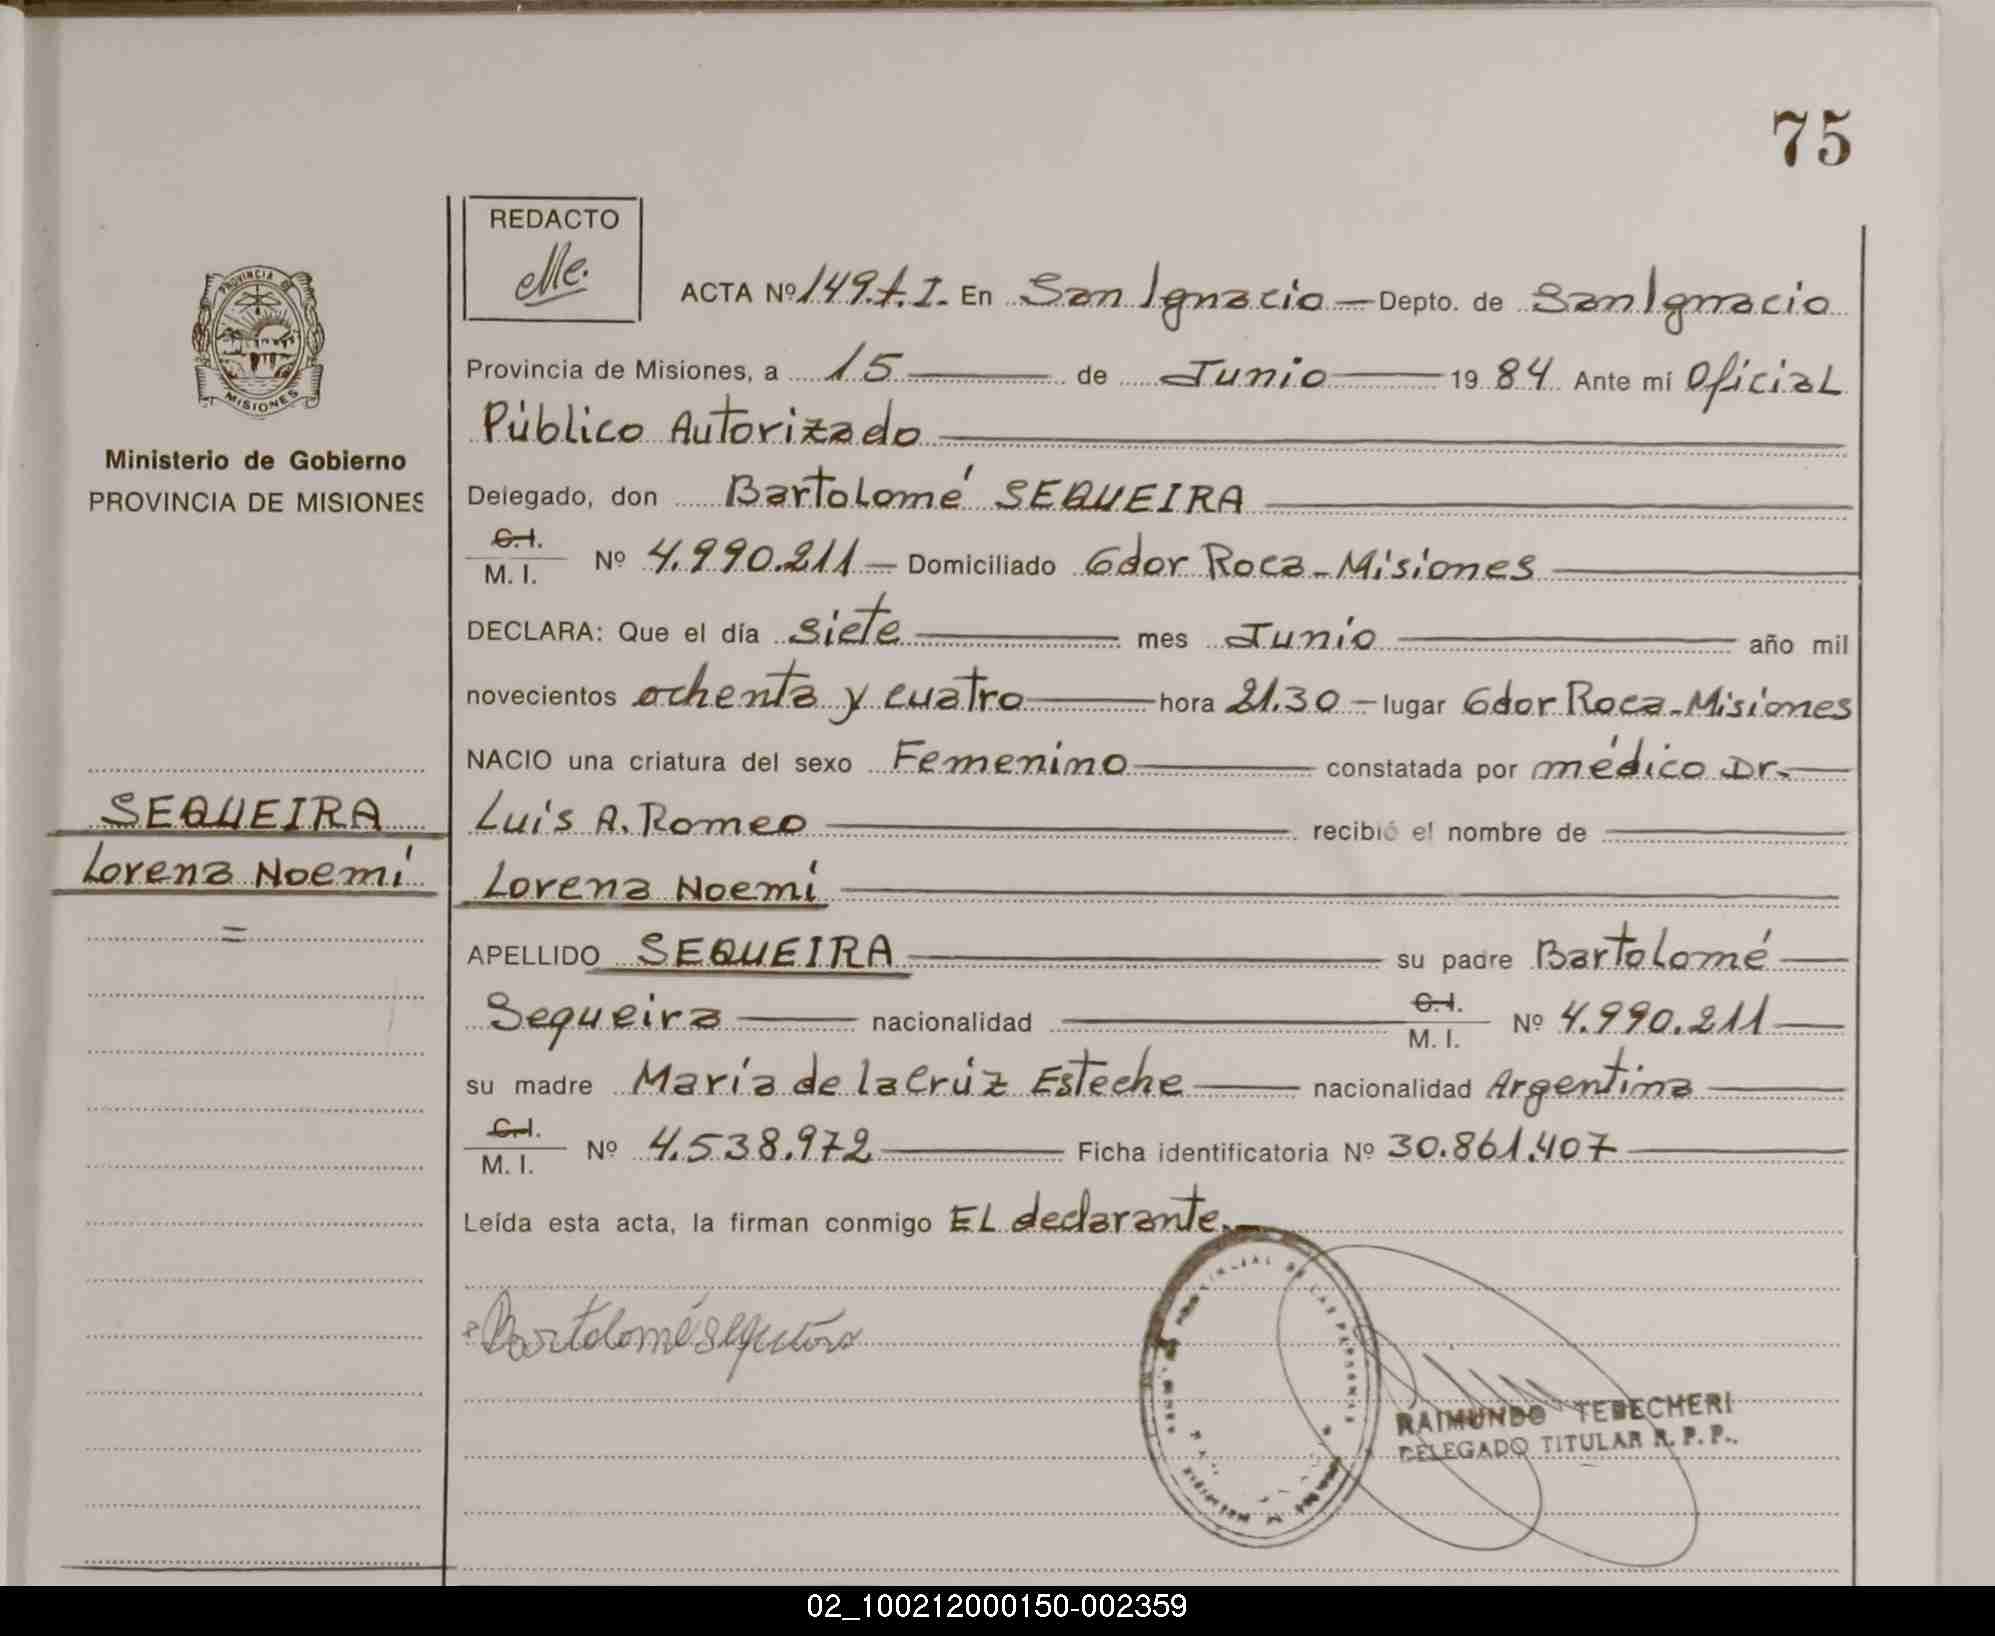 75
REDACTO
Me.
PROVINCIA DE
MISIONES
Ministerio de Gobierno
PROVINCIA DE MISIONES
SEQUEIRA
Lorena Noemí
=
ACTA Nº 149.t.I. En San Ignacio — Depto. de San Ignacio
Provincia de Misiones, a 15 de Junio 1984 Ante mí Oficial
Público Autorizado
Delegado, don Bartolomé SEQUEIRA
C.I.
M. I. Nº 4.990.211 — Domiciliado Gdor Roca - Misiones
DECLARA: Que el día siete mes Junio año mil
novecientos ochenta y cuatro hora 21.30 — lugar Gdor Roca - Misiones
NACIO una criatura del sexo Femenino constatada por médico Dr.
Luis A. Romeo recibió el nombre de
Lorena Noemí
APELLIDO SEQUEIRA su padre Bartolomé
Sequeira nacionalidad C.I. M. I. Nº 4.990.211
su madre María de la Crúz Esteche nacionalidad Argentina
C.I.
M. I. Nº 4.538.972 Ficha identificatoria Nº 30.861.407
Leída esta acta, la firman conmigo EL declarante.
Bartolomé Sequeira
RAIMUNDO TEBECHERI
DELEGADO TITULAR R. P. P.
02_100212000150-002359